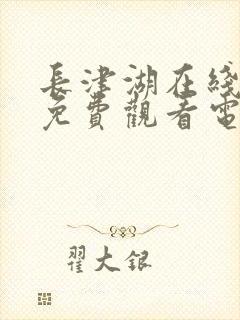 長津湖在綫
免費觀看電
翟大銀